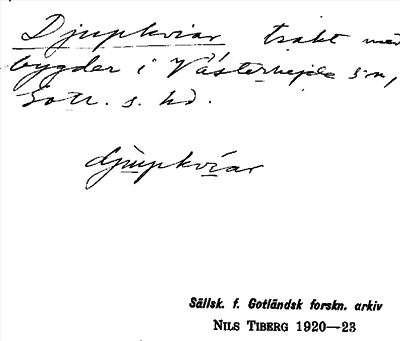 Djupkviar trakt med
bygder i Västerhejde s:n,
Gotl. s. hd.
djùpkvíar
Sällsk. f. Gotländsk forskn. arkiv
NILS TIBERG 1920—23